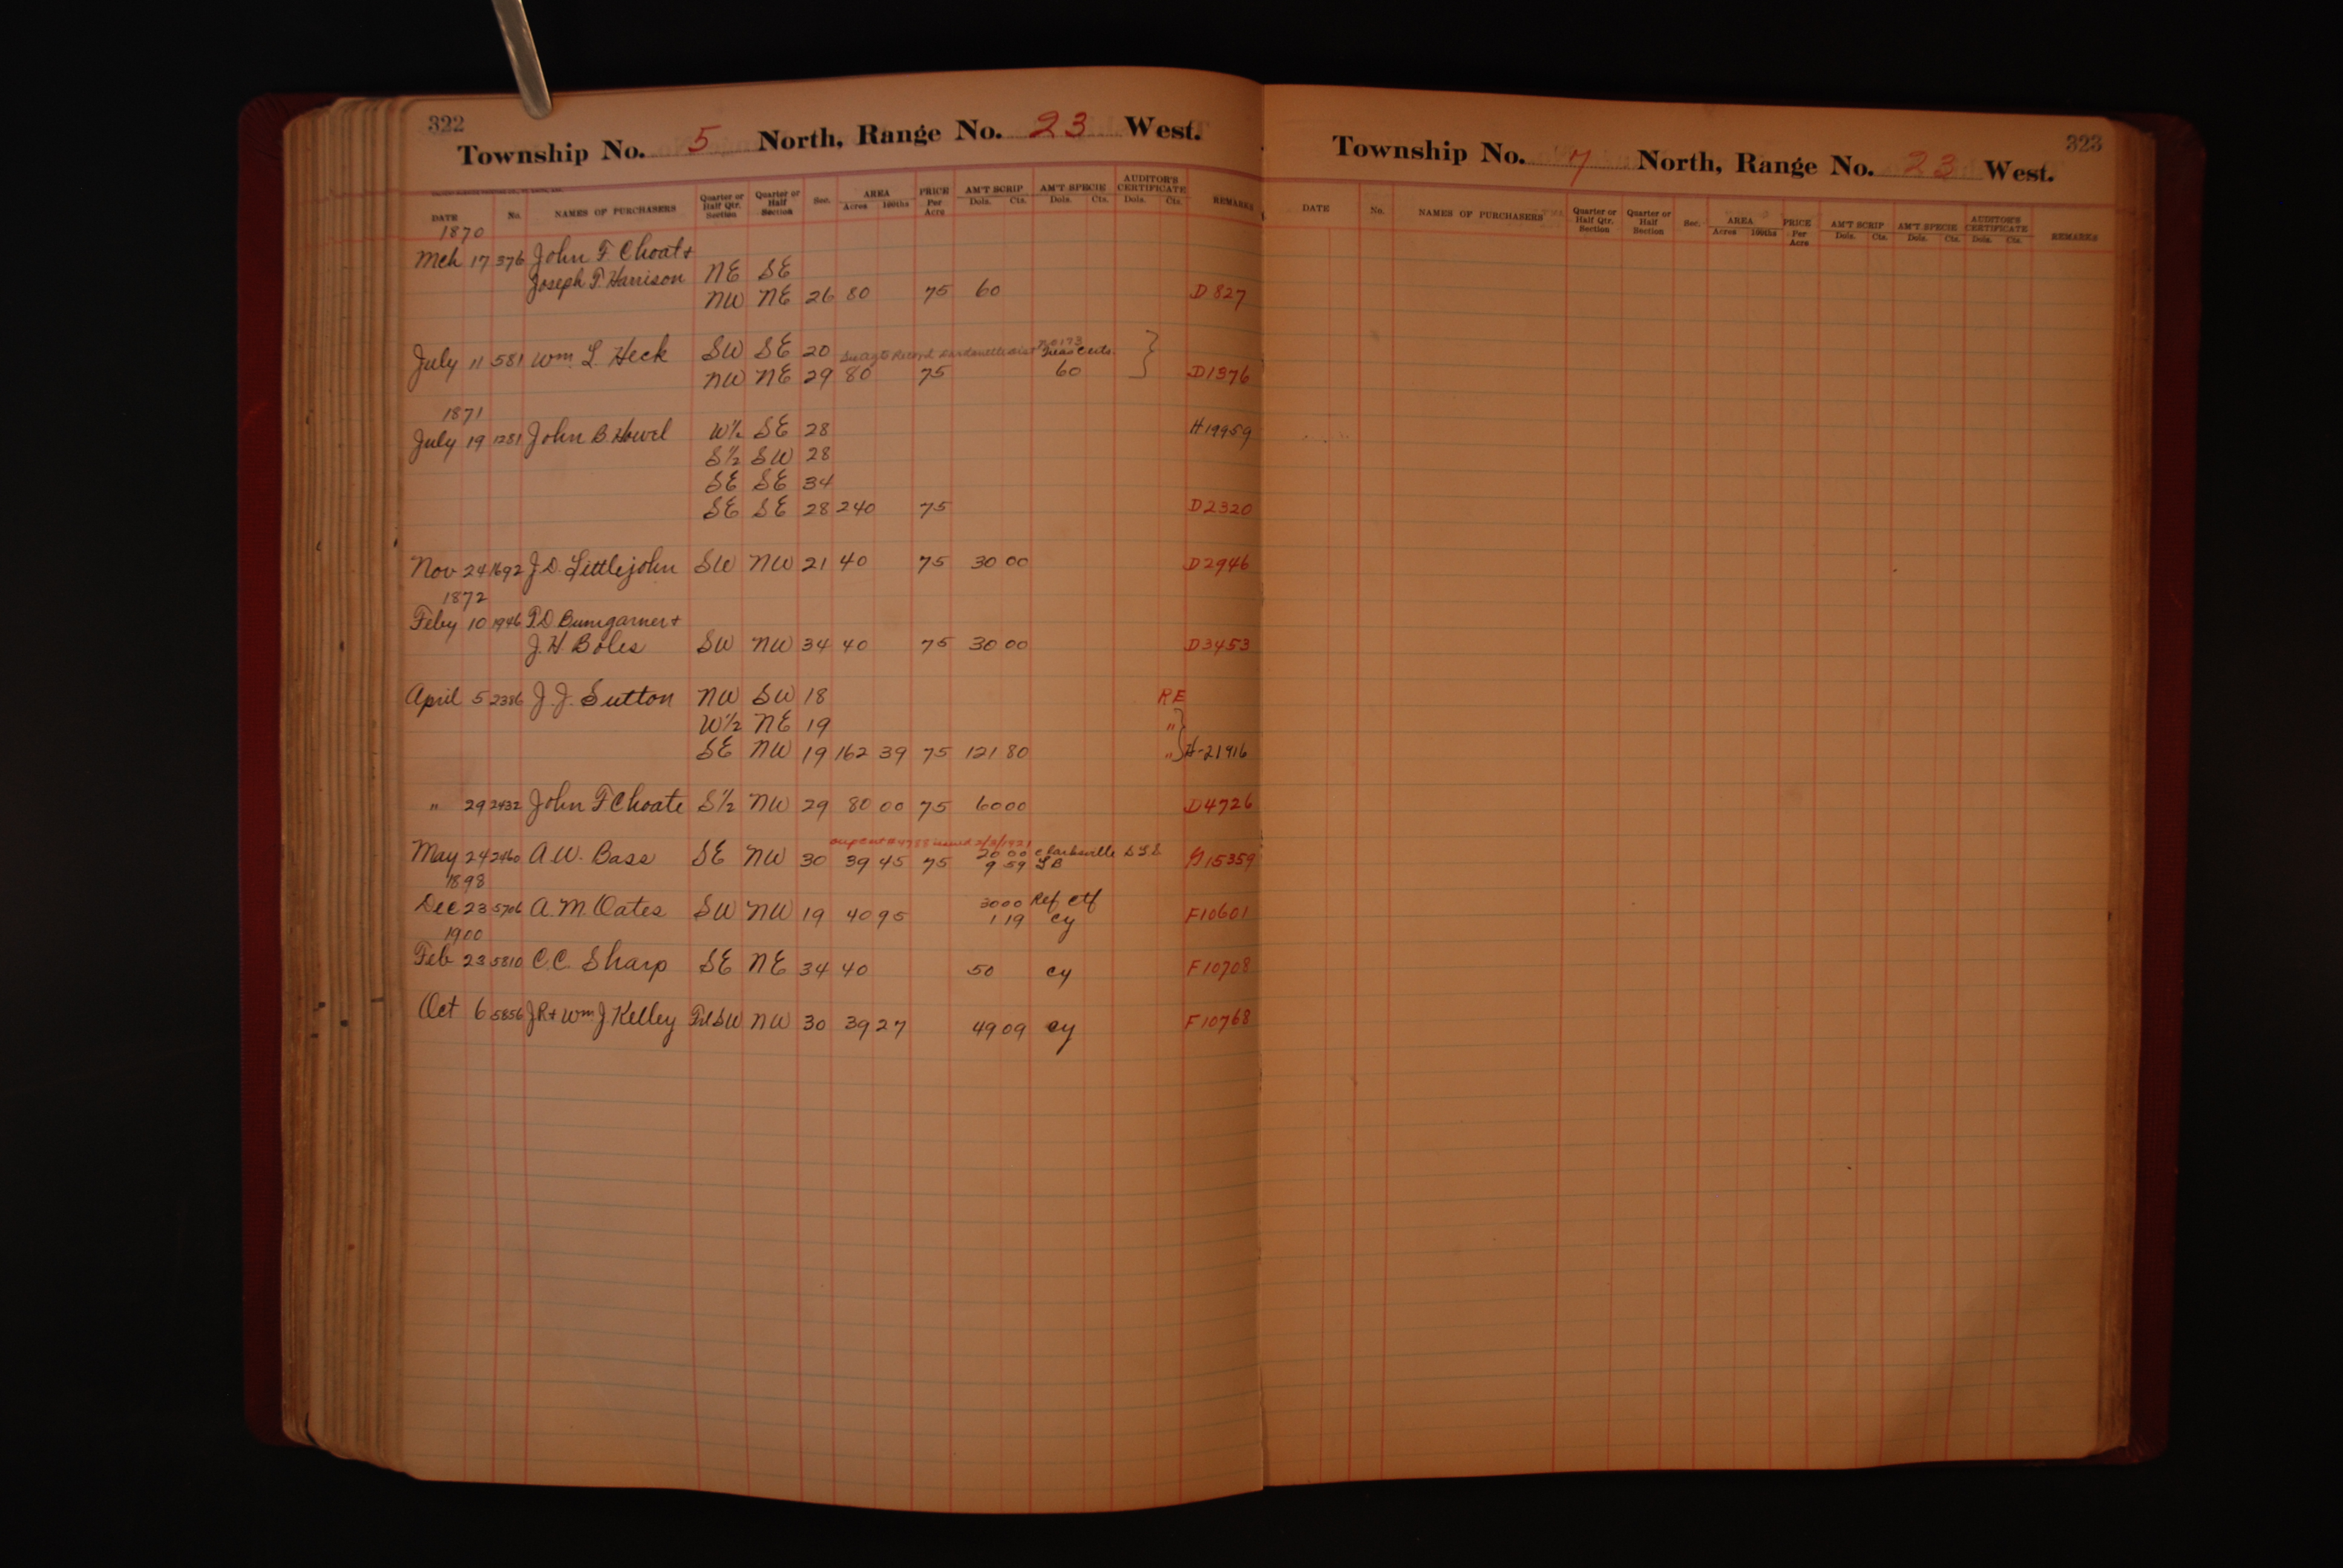 322
Township No. 5 North, Range No. 23 West.
DATE No. NAMES OF PURCHASERS Quarter or Half Qtr. Section Quarter or Half Section Sec. AREA Acres 100ths PRICE Per Acre AM'T SCRIP Dols. Cts. AM'T SPECIE Dols. Cts. AUDITOR'S CERTIFICATE Dols. Cts. REMARKS
1870
Mch 17 376 John F. Choat +
Joseph T. Harrison NE SE
NW NE 26 80 75 60 D 827
July 11 581 Wm. L. Heck SW SE 20 Treas Certs.
NW NE 29 80 75 60 D1376
1871
July 19 1281 John B. Howel W½ SE 28 H19959
S½ SW 28
SE SE 34
SE SE 28 240 75 D2320
Nov 24 1692 J.D. Littlejohn SW NW 21 40 75 30 00 D2946
1872
Feby 10 1946 P.D Bumgarner +
J. H. Boles SW NW 34 40 75 30 00 D3453
April 5 2386 J. J. Sutton NW SW 18 RE
W½ NE 19 "
SE NW 19 162 39 75 121 80 " H-21916
" 29 2432 John F Choate S½ NW 29 80 00 75 60 00 D4726
20 00 Clarksville
May 24 2460 A. W. Bass SE NW 30 39 45 75 9 59 G15359
1898
30 00 Ref ctf
Dec 23 5706 A. M. Oates SW NW 19 40 95 1 19 cy F10601
1900
Feb 23 5810 C.C. Sharp SE NE 34 40 50 cy F10708
Oct 6 5856 J R + Wm. J Kelley Frl SW NW 30 39 27 49 09 cy F10768
323
Township No. 7 North, Range No. 23 West.
DATE No. NAMES OF PURCHASERS Quarter or Half Qtr. Section Quarter or Half Section Sec. AREA Acres 100ths PRICE Per Acre AM'T SCRIP Dols. Cts. AM'T SPECIE Dols. Cts. AUDITOR'S CERTIFICATE Dols. Cts. REMARKS